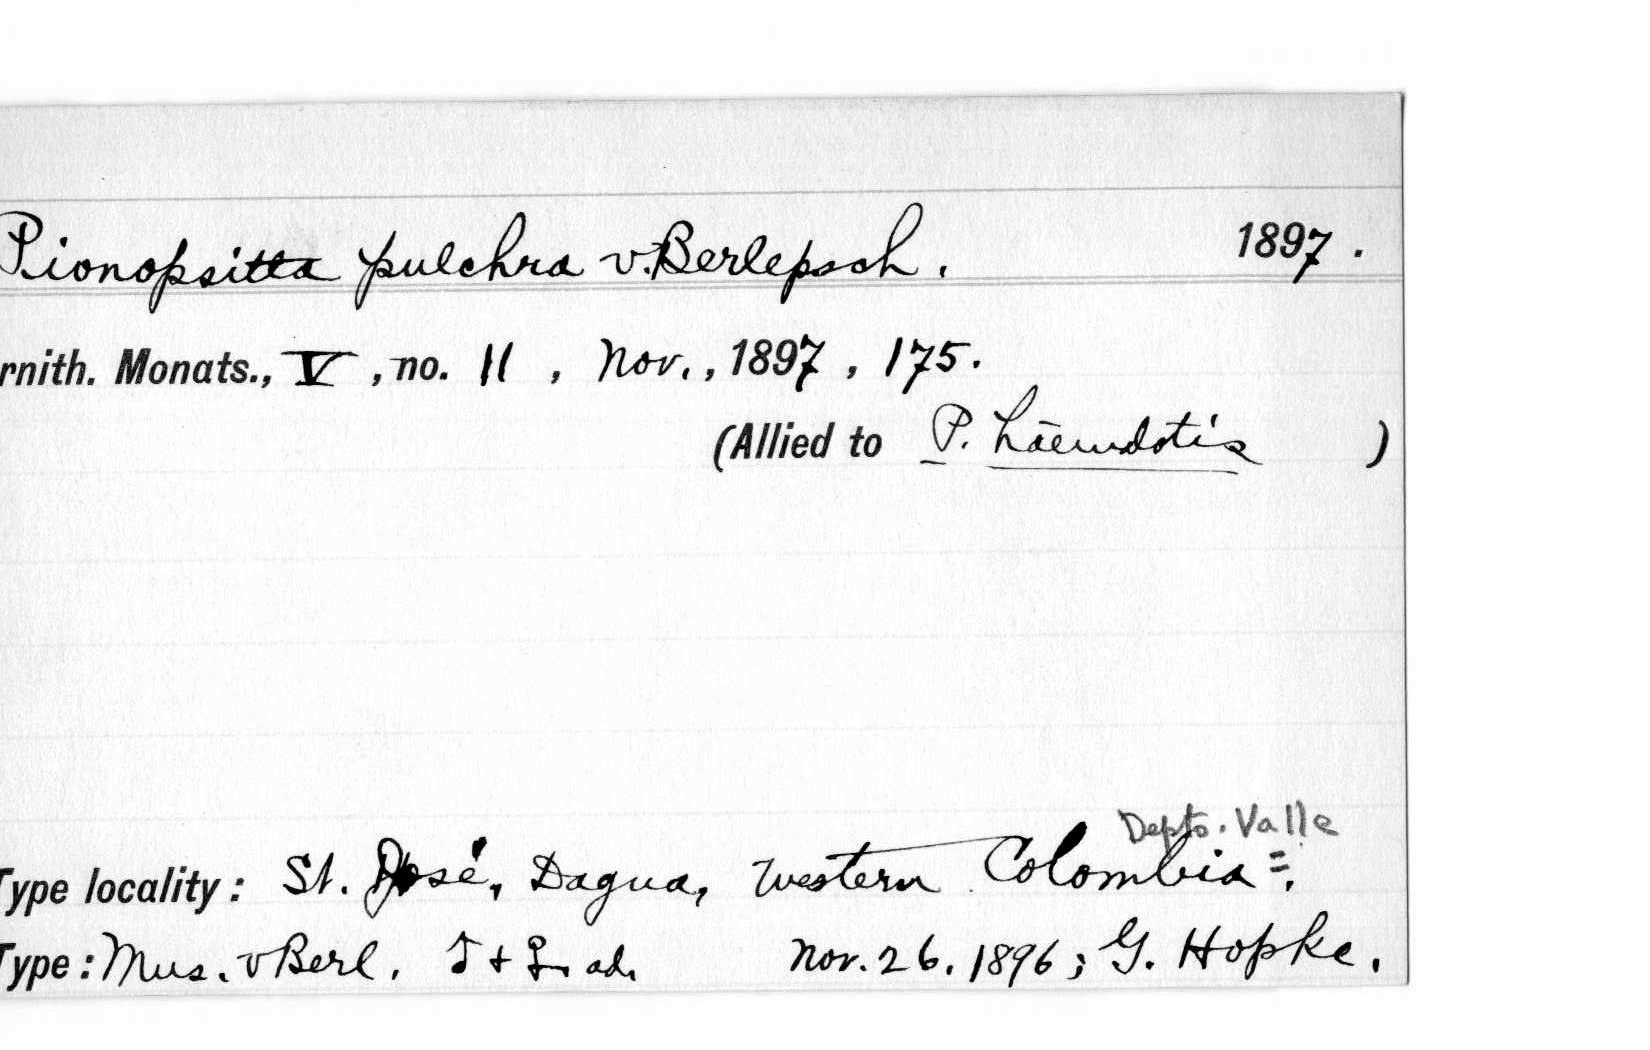 Pionopsitta pulchra v. Berlepsch. 1897.
rnith. Monats., V, no. 11, Nov., 1897, 175.
(Allied to P. haematotis)
Depto. Valle
Type locality: St. José, Dagua, Western Colombia =.
Type: Mus. v Berl. ♂ + ♀ ad. Nov. 26. 1896; G. Hopke.